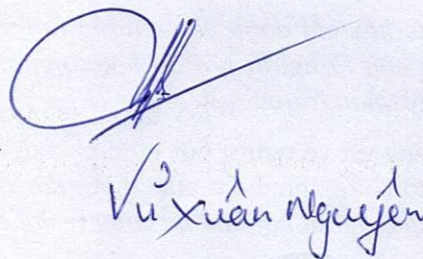 Vũ Xuân Nguyên